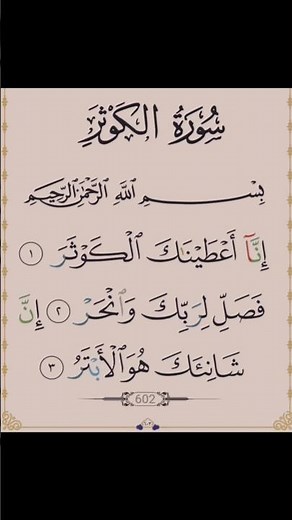 سُورَةُ الكَوْثَرِ
بِسْمِ اللَّهِ الرَّحْمَٰنِ الرَّحِيمِ
إِنَّآ أَعْطَيْنَٰكَ ٱلْكَوْثَرَ ١
فَصَلِّ لِرَبِّكَ وَٱنْحَرْ ٢ إِنَّ
شَانِئَكَ هُوَ ٱلْأَبْتَرُ ٣
602